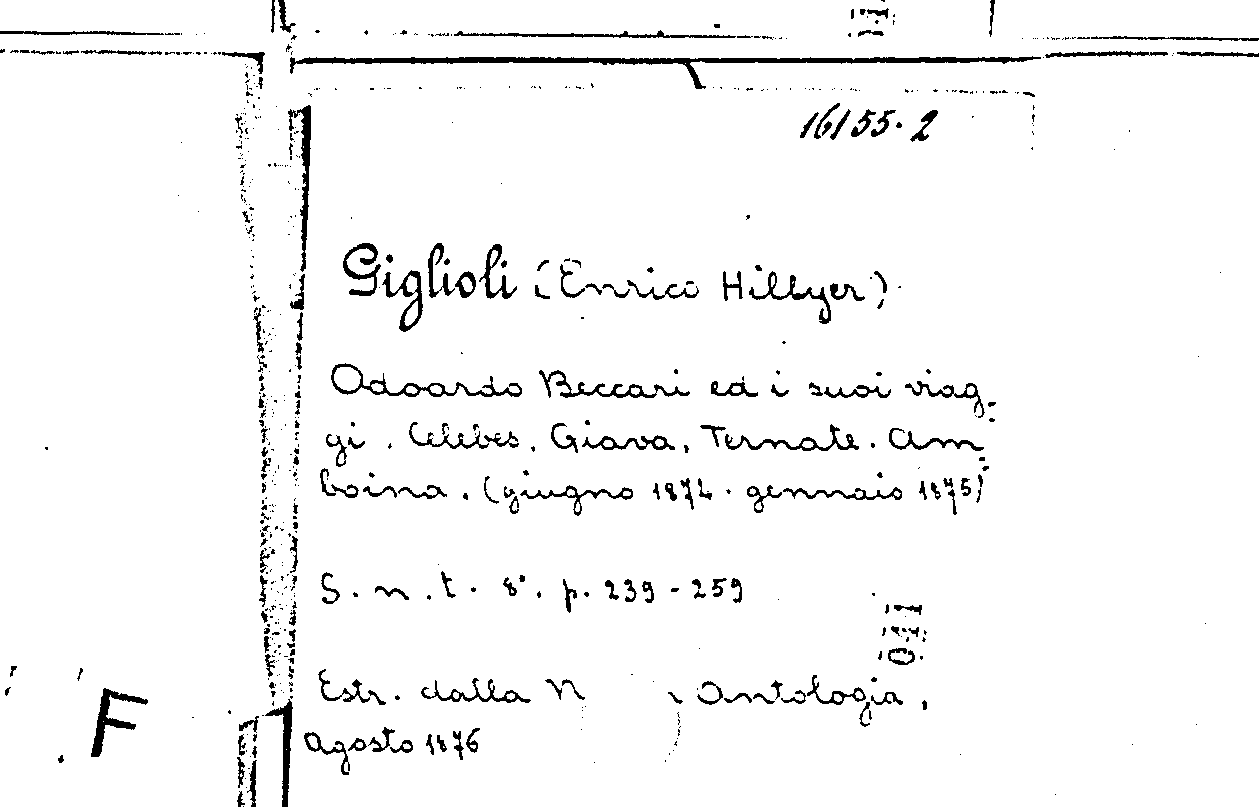 16155.2
Giglioli (Enrico Hillyer)
Odoardo Beccari ed i suoi viag-
gi. Celebes, Giava, Ternate. Am-
boina. (giugno 1874. gennaio 1875)
S. n. t. 8°. p. 239-259
011
Estr. dalla N Antologia,
F
Agosto 1876